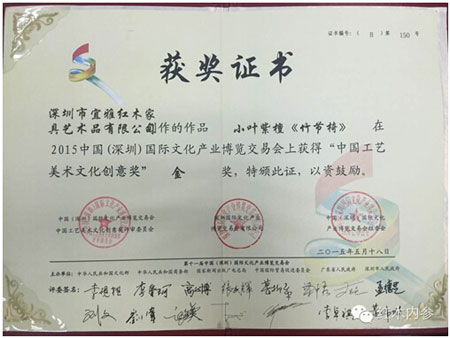 证书编号：（ B ）第 150 号
获奖证书
深圳市宜雅红木家
具艺术品有限公司创作的作品 小叶紫檀《竹节椅》 在
2015中国(深圳)国际文化产业博览交易会上获得“中国工艺
美术文化创意奖” 金 奖，特颁此证，以资鼓励。
中国（深圳）国际文化产业博览交易会 深圳国际文化产业 中国（深圳）国际文化产业
中国工艺美术文化创意奖评审委员会 博览交易会有限公司 博览交易会组委会
二〇一五年五月十八日
第十一届中国（深圳）国际文化产业博览交易会
主办单位：中华人民共和国文化部 中华人民共和国商务部 国家新闻出版广电总局 中国国际贸易促进委员会 广东省人民政府 深圳市人民政府
评委签名：
红木内参